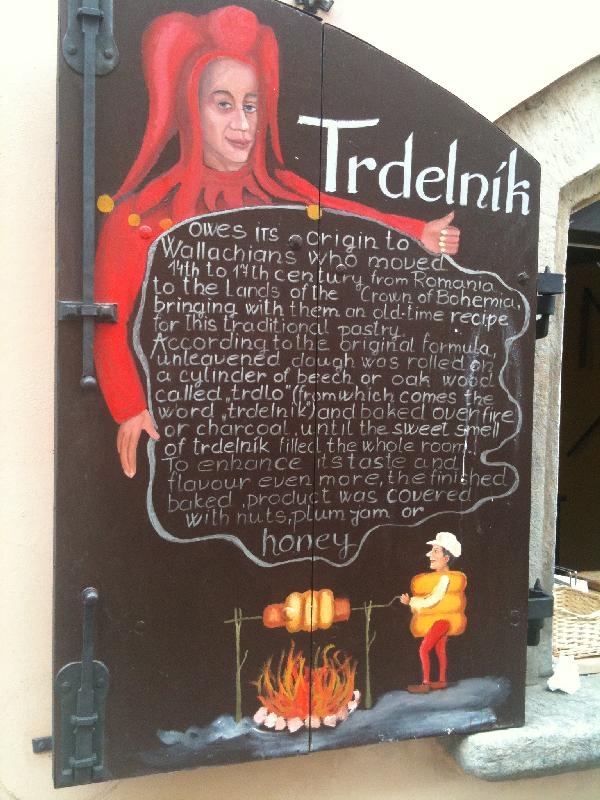 Trdelník
owes its origin to
Wallachians who moved
14th to 17th century from Romania
to the Lands of the Crown of Bohemia,
bringing with them an old-time recipe
for this traditional pastry.
According to the original formula,
unleavened dough was rolled on
a cylinder of beech or oak wood
called „trdlo" (from which comes the
word „trdelník") and baked over fire
or charcoal, until the sweet smell
of trdelník filled the whole room.
To enhance its taste and
flavour even more, the finished
baked product was covered
with nuts, plum jam or
honey